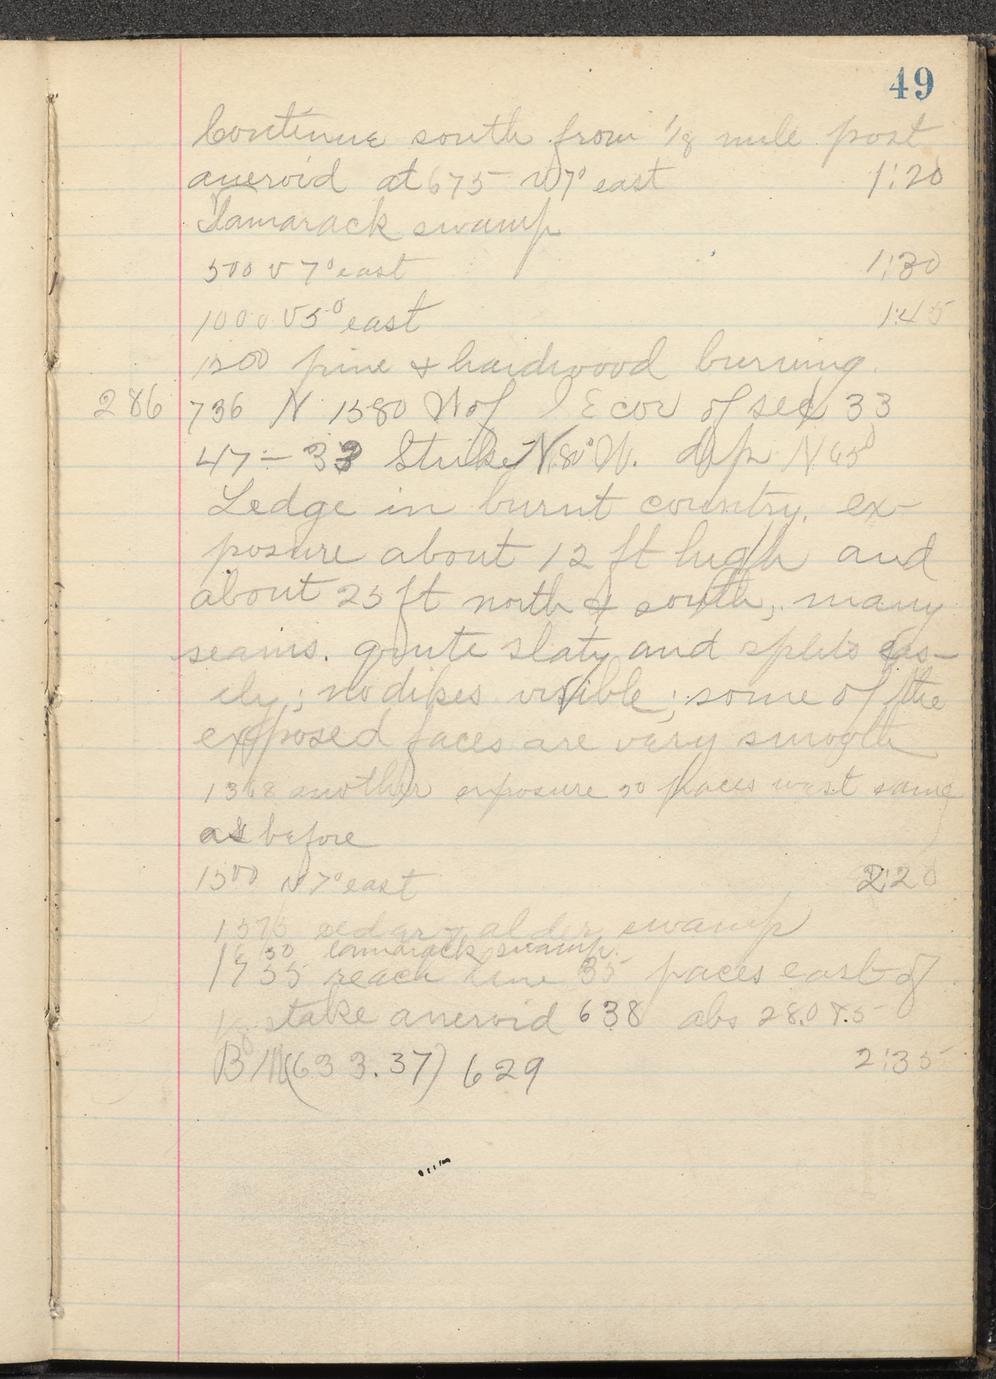 49
Continue south from 1/8 mile post
aneroid at 675 v 7° east 1:20
Tamarack swamp
500 v 7° east 1:30
1000 v 5° east 1:45
1200 pine & hardwood burning.
286 736 N 1580 W of E cor of sec 33
47 - 33 Strike N 80° W. dip N 65°
Ledge in burnt country. ex-
posure about 12 ft high and
about 25 ft north & south, many
seams. quite slaty and splits eas-
ily; no dikes visible; some of the
exposed faces are very smooth
1368 another exposure 50 paces west same
as before
1500 v 7° east 2:20
1575 sedar & alder swamp
1650 tamarack swamp.
1755 reach line 35 paces east of
1/8 stake aneroid 638 abs 28.085
BM (633.37) 629 2:35